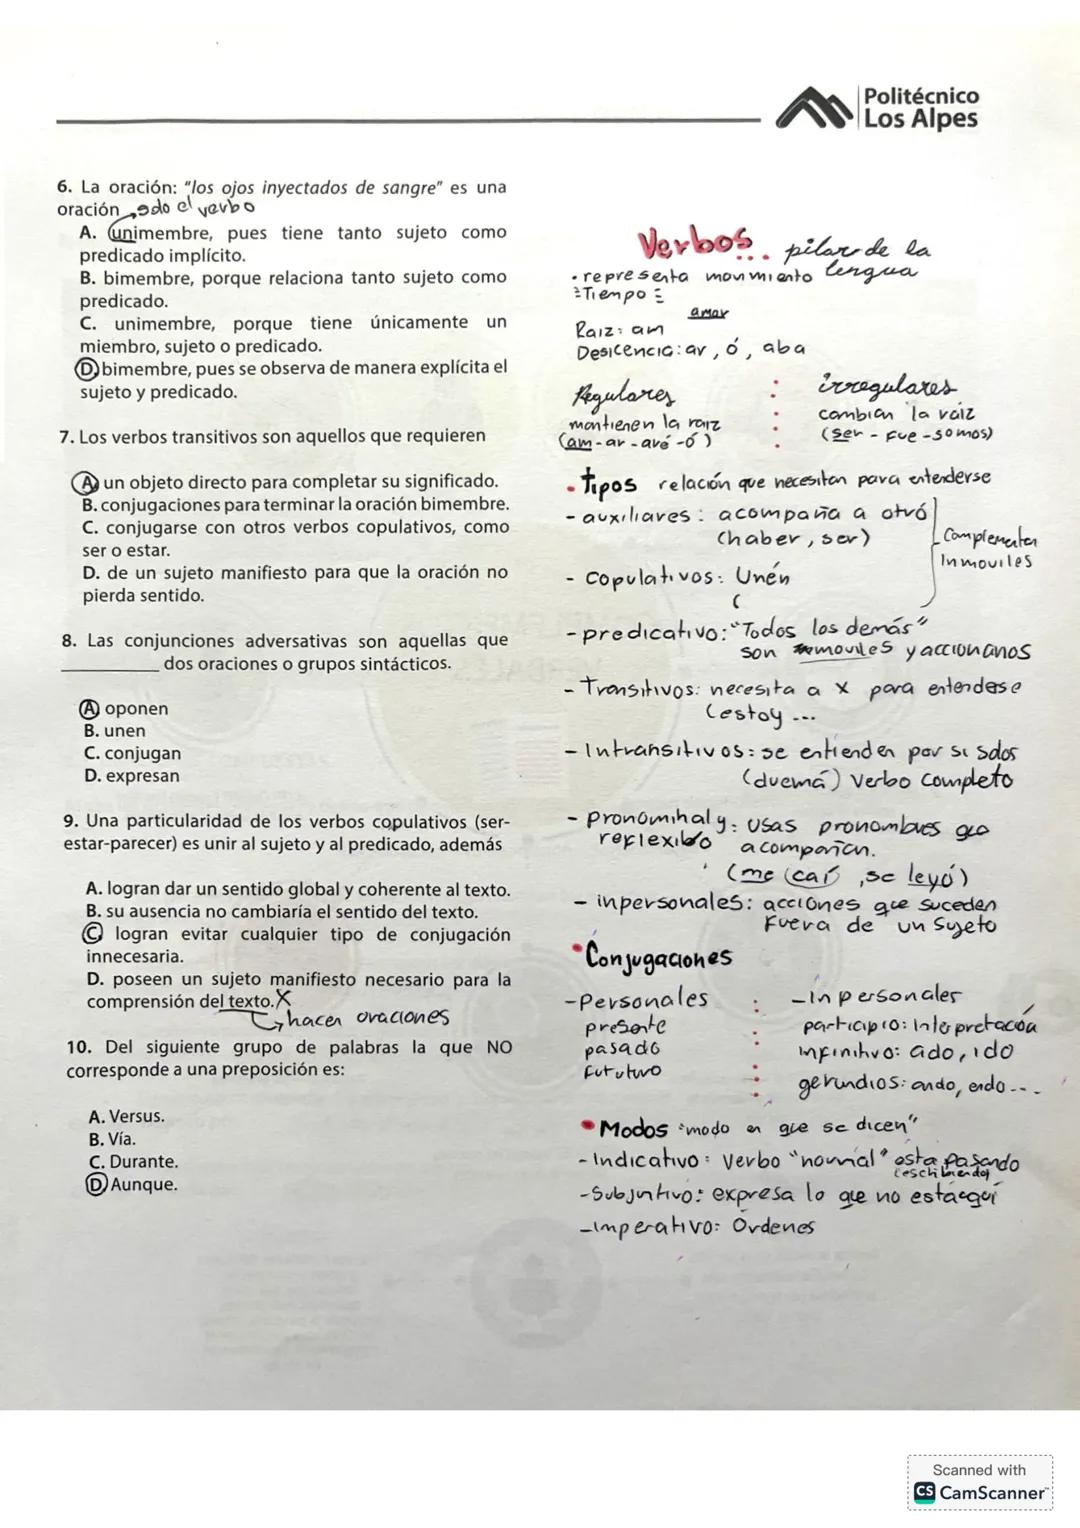 Politécnico
Los Alpes
6. La oración: "los ojos inyectados de sangre" es una
oración solo el verbo
A. unimembre, pues tiene tanto sujeto como
predicado implícito.
B. bimembre, porque relaciona tanto sujeto como
predicado.
C. unimembre, porque tiene únicamente un
miembro, sujeto o predicado.
D. bimembre, pues se observa de manera explícita el
sujeto y predicado.
7. Los verbos transitivos son aquellos que requieren
A. un objeto directo para completar su significado.
B. conjugaciones para terminar la oración bimembre.
C. conjugarse con otros verbos copulativos, como
ser o estar.
D. de un sujeto manifiesto para que la oración no
pierda sentido.
8. Las conjunciones adversativas son aquellas que
__________ dos oraciones o grupos sintácticos.
A. oponen
B. unen
C. conjugan
D. expresan
9. Una particularidad de los verbos copulativos (ser-
estar-parecer) es unir al sujeto y al predicado, además
A. logran dar un sentido global y coherente al texto.
B. su ausencia no cambiaría el sentido del texto.
C. logran evitar cualquier tipo de conjugación
innecesaria.
D. poseen un sujeto manifiesto necesario para la
comprensión del texto. X
hacen oraciones
10. Del siguiente grupo de palabras la que NO
corresponde a una preposición es:
A. Versus.
B. Vía.
C. Durante.
D. Aunque.
Verbos... pilar de la
lengua
• representa movimiento
Tiempo
amar
Raiz: am
Desicencia: ar, ó, aba
Regulares
mantienen la raiz
(am-ar-aré-ó)
irregulares
cambian la raiz
(ser - fue - somos)
• tipos relación que necesitan para entenderse
- auxiliares: acompaña a otro
(haber, ser)
- Copulativos: Unén
(
Complementen
Inmoviles
- predicativo: "Todos los demás"
son moviles y accionanos
- Transitivos: necesita a x para entenderse
(estoy ...
- Intransitivos: se entienden por si solos
(duerma) Verbo Completo
- pronominal y: usas pronombres que
reflexibo acompañan.
(me caí, se leyó)
- inpersonales: acciones que suceden
Fuera de un Sujeto
• Conjugaciones
- Personales
presente
pasado
fututuro
- Inpersonales
participio: Interpretación
infinitivo: ado, ido
gerundios: ando, endo...
• Modos "modo en que se dicen"
- Indicativo: Verbo "normal" esta pasando
(escribiendo)
- Subjuntivo: expresa lo que no está aquí
- Imperativo: Órdenes
Scanned with
CS CamScanner